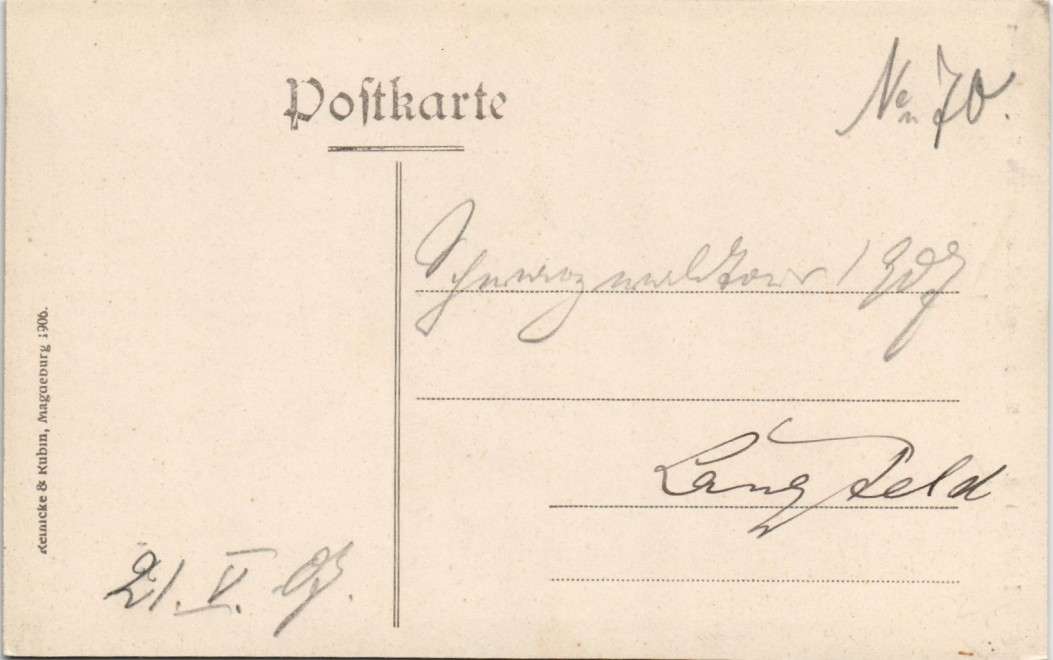 Postkarte
No 70.
Schwarzwaldtour 1907
Langfeld
21. V. 07.
Reinicke & Rubin, Magdeburg 1906.